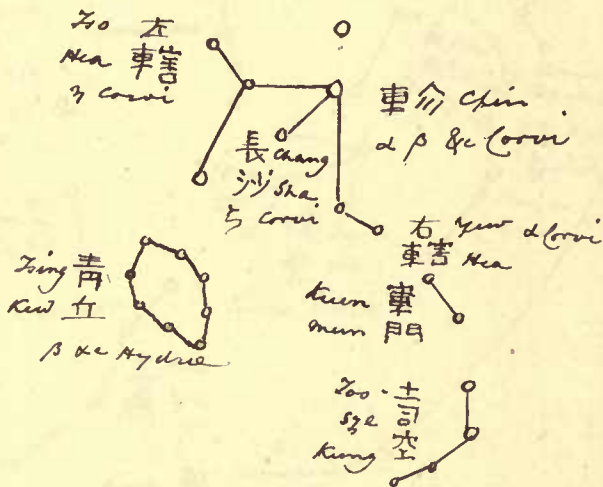 Tso 左
Hea 轄
η Corvi
軫 Chin
α β &c Corvi
長 Chang
沙 Sha
ζ Corvi
右 Yew α Corvi
轄 Hea
Tsing 青
Kew 丘
β &c Hydræ
Keun 軍
mun 門
Too 土
Sze 司
Kung 空